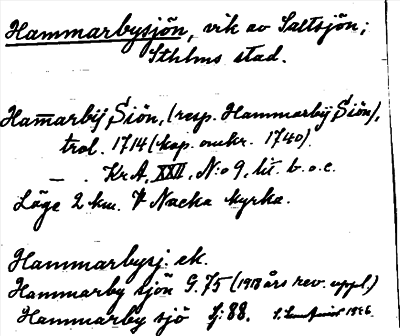 Hammarbysjön, vik av Saltsjön;
Sthlms stad.
Ham̅arbÿ Siön, (resp. Hammarbÿ Siön),
trol. 1714 (kop. omkr. 1740).
— . Kr A, XXII, N:o 9, lit. b. o. c.
Läge 2 km. V Nacka kyrka.
Hammarbysj. ek.
Hammarby sjön G. 75 (1918 års rev. uppl.)
Hammarby sjö fj. 88. 1946.